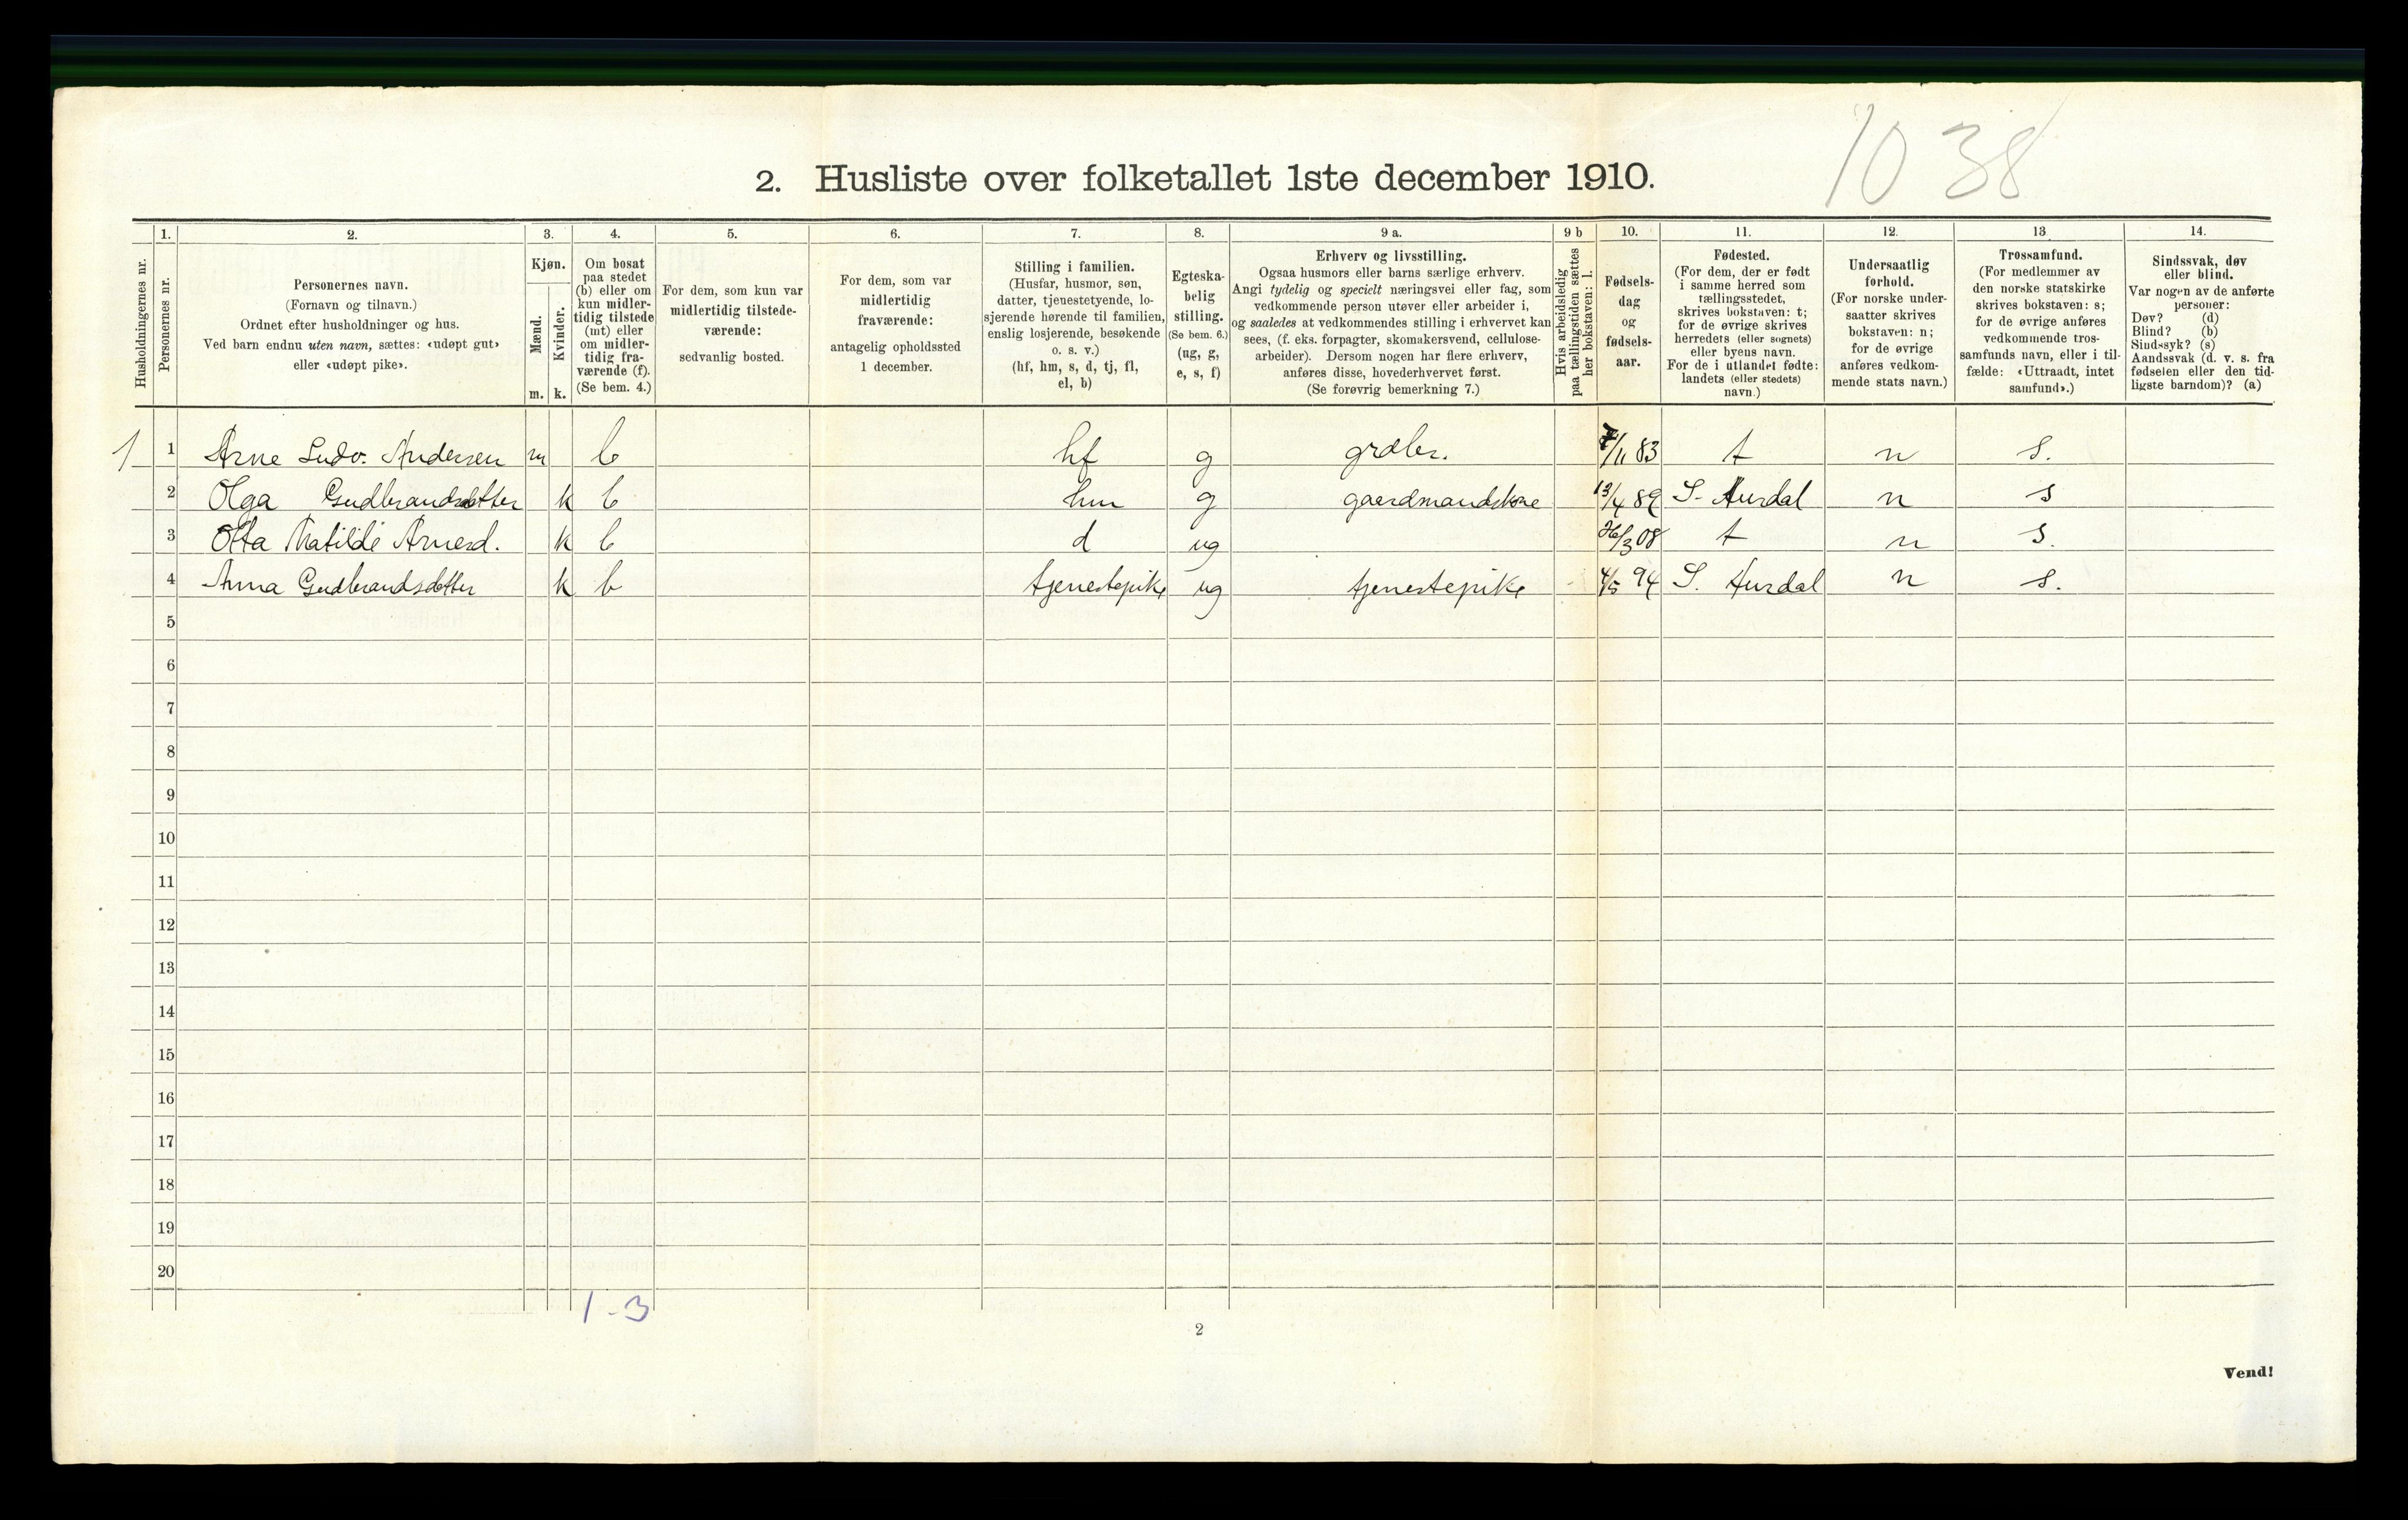 10 38
2. Husliste over folketallet 1ste december 1910.
1. 2. 3. 4. 5. 6. 7. 8. 9 a. 9 b 10. 11. 12. 13 14.
Husholdningernes nr.
Personernes nr.
Personernes navn.
(Fornavn og tilnavn.)
Ordnet efter husholdninger og hus.
Ved barn endnu uten navn, sættes: «udøpt gut»
eller «udøpt pike».
Kjøn.
Mænd.
Kvinder.
m. k.
Om bosat
paa stedet
(b) eller om
kun midler-
tidig tilstede
(mt) eller
om midler-
tidig fra-
værende (f).
(Se bem. 4.)
For dem, som kun var
midlertidig tilstede-
værende:
sedvanlig bosted.
For dem, som var
midlertidig
fraværende:
antagelig opholdssted
1 december.
Stilling i familien.
(Husfar, husmor, søn,
datter, tjenestetyende, lo-
sjerende hørende til familien,
enslig losjerende, besøkende
o. s. v.)
(hf, hm, s, d, tj, fl,
el, b)
Egteska-
belig
stilling.
(Se bem. 6.)
(ug, g,
e, s, f)
Erhverv og livsstilling.
Ogsaa husmors eller barns særlige erhverv.
Angi tydelig og specielt næringsvei eller fag, som
vedkommende person utøver eller arbeider i,
og saaledes at vedkommendes stilling i erhvervet kan
sees, (f. eks. forpagter, skomakersvend, cellulose-
arbeider). Dersom nogen har flere erhverv,
anføres disse, hovederhvervet først.
(Se forøvrig bemerkning 7.)
Hvis arbeidsledig
paa tællingstiden sættes
her bokstaven: l.
Fødsels-
dag
og
fødsels-
aar.
Fødested.
(For dem, der er født
i samme herred som
tællingsstedet,
skrives bokstaven: t;
for de øvrige skrives
herredets (eller sognets)
eller byens navn.
For de i utlandet fødte:
landets (eller stedets)
navn.)
Undersaatlig
forhold.
(For norske under-
saatter skrives
bokstaven: n;
for de øvrige
anføres vedkom-
mende stats navn.)
Trossamfund.
(For medlemmer av
den norske statskirke
skrives bokstaven: s;
for de øvrige anføres
vedkommende tros-
samfunds navn, eller i til-
fælde: «Uttraadt, intet
samfund».)
Sindssvak, døv
eller blind.
Var nogen av de anførte
personer:
Døv? (d)
Blind? (b)
Sindssyk? (s)
Aandssvak (d. v. s. fra
fødselen eller den tid-
ligste barndom)? (a)
1 1 Arne Ludv. Andersen m b hf g grdbr. 7/11 83 t n s.
2 Olga Gudbrandsdatter k b hm g gaardmandskone 13/4 89 S. Aurdal n s
3 Otta Matilde Arnesd. k b d ug 26/3 08 t n s.
4 Anna Gudbrandsdatter k b tjenestepike ug tjenestepike 4/5 94 S. Aurdal n s.
5
6
7
8
9
10
11
12
13
14
15
16
17
18
19
20
1 - 3
2
Vend!